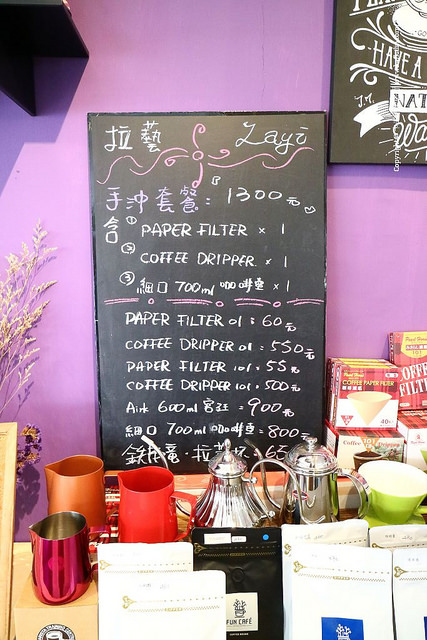 拉藝 Layi
手沖套餐：1300元
含① PAPER FILTER × 1
② COFFEE DRIPPER × 1
③ 細口 700ml 咖啡壺 × 1
PAPER FILTER 01：60元
COFFEE DRIPPER 01：550元
PAPER FILTER 101：55元
COFFEE DRIPPER 101：500元
600ml 宮廷：900元
細口 700ml 咖啡壺：800元
HAVE A
COFFEE PAPER FILTER
FUN CAFÉ